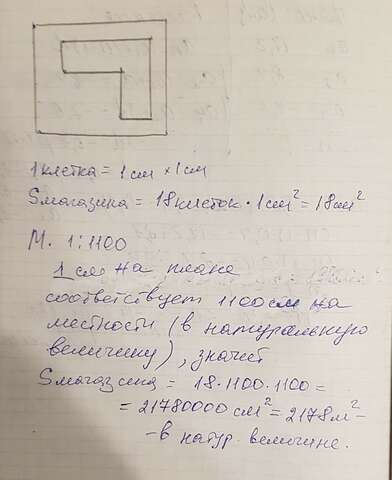 1 клетка = 1 см × 1 см
Sмагазина = 18 клеток · 1 см² = 18 см²
М. 1:1100
1 см на плане
соответствует 1100 см на
местности (в натуральную
величину), значит
Sмагазина = 18 · 1100 · 1100 =
= 21780000 см² = 2178 м² -
- в натур. величине.